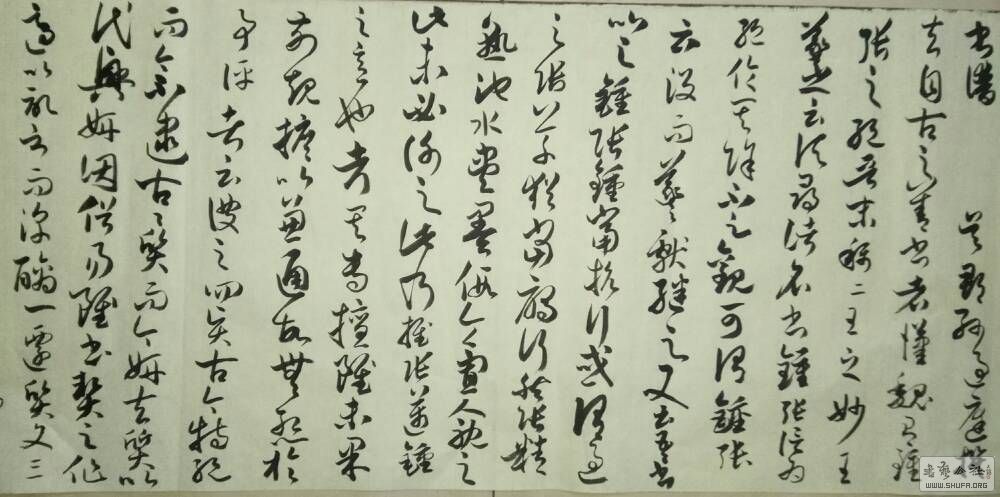 書譜 吳郡孫過庭撰
夫自古之善書者漢魏有鍾
張之絕晉末稱二王之妙王
羲之云頃尋諸名書鍾張信為
絕倫其餘不足觀可謂鍾張
云沒而羲獻繼之又云吾書
比之鍾張鍾當抗行或謂過
之張草猶當雁行然張精
熟池水盡墨假令寡人耽之
此未必謝之此乃推張邁鍾
之意也考其專擅雖未果
前規摭以兼通故無慙於
即事評者云彼之四賢古今特絕
而今不逮古〻質而今妍夫質以
代興妍因俗易雖書契之作
適以記言而淳醨一遷質文三
书艺公社
WWW.SHUFA.ORG